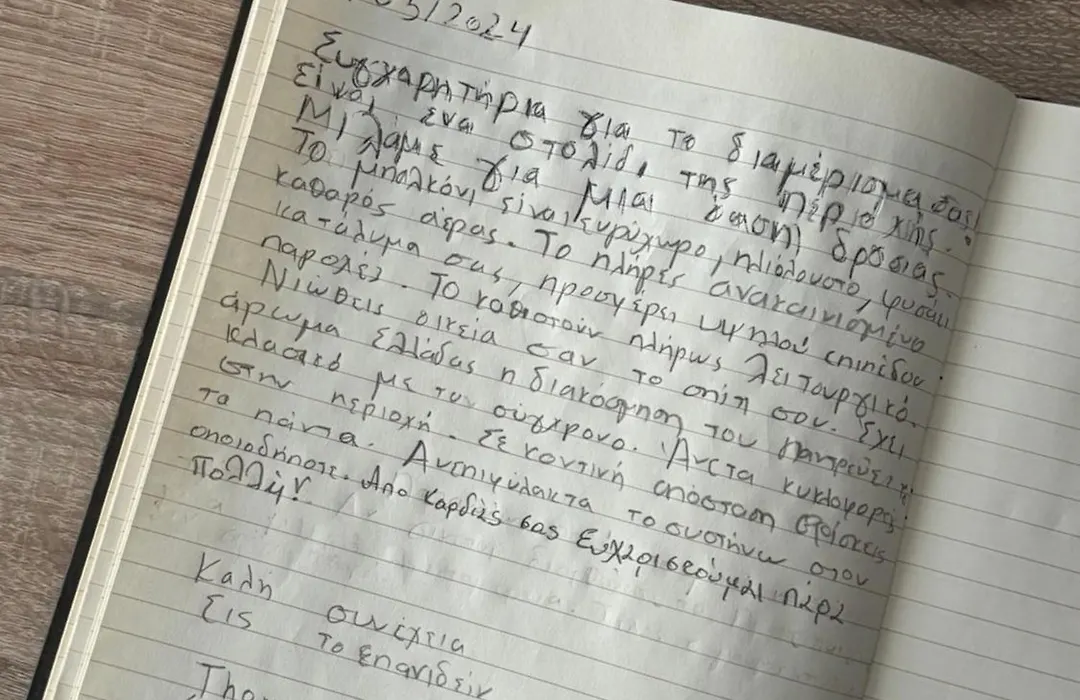 05/2024
Συγχαρητήρια για το διαμέρισμα σας!
Είναι ένα στολίδι της περιοχής.
Μιλάμε για μια όαση δροσιάς.
Το μπαλκόνι είναι ευρύχωρο, ηλιόλουστο, φυσάει
καθαρός αέρας. Το πλήρες ανακαινισμένο
κατάλυμα σας, προσφέρει υψηλού επιπέδου
παροχές. Το καθιστούν πλήρως λειτουργικό.
Νιώθεις οικεία σαν το σπίτι σου. Έχει
άρωμα Ελλάδας η διακόσμηση του παντρεύει
κλασικό με τον σύγχρονο. Άνετα κυκλοφορείς
στην περιοχή. Σε κοντινή απόσταση βρίσκεις
τα πάντα. Ανεπιφύλακτα το συστήνω στον
οποιοδήποτε. Απο καρδιάς σας Ευχαριστούμε πάρα
πολλή!
Καλή συνέχεια
Εις το επανιδείν